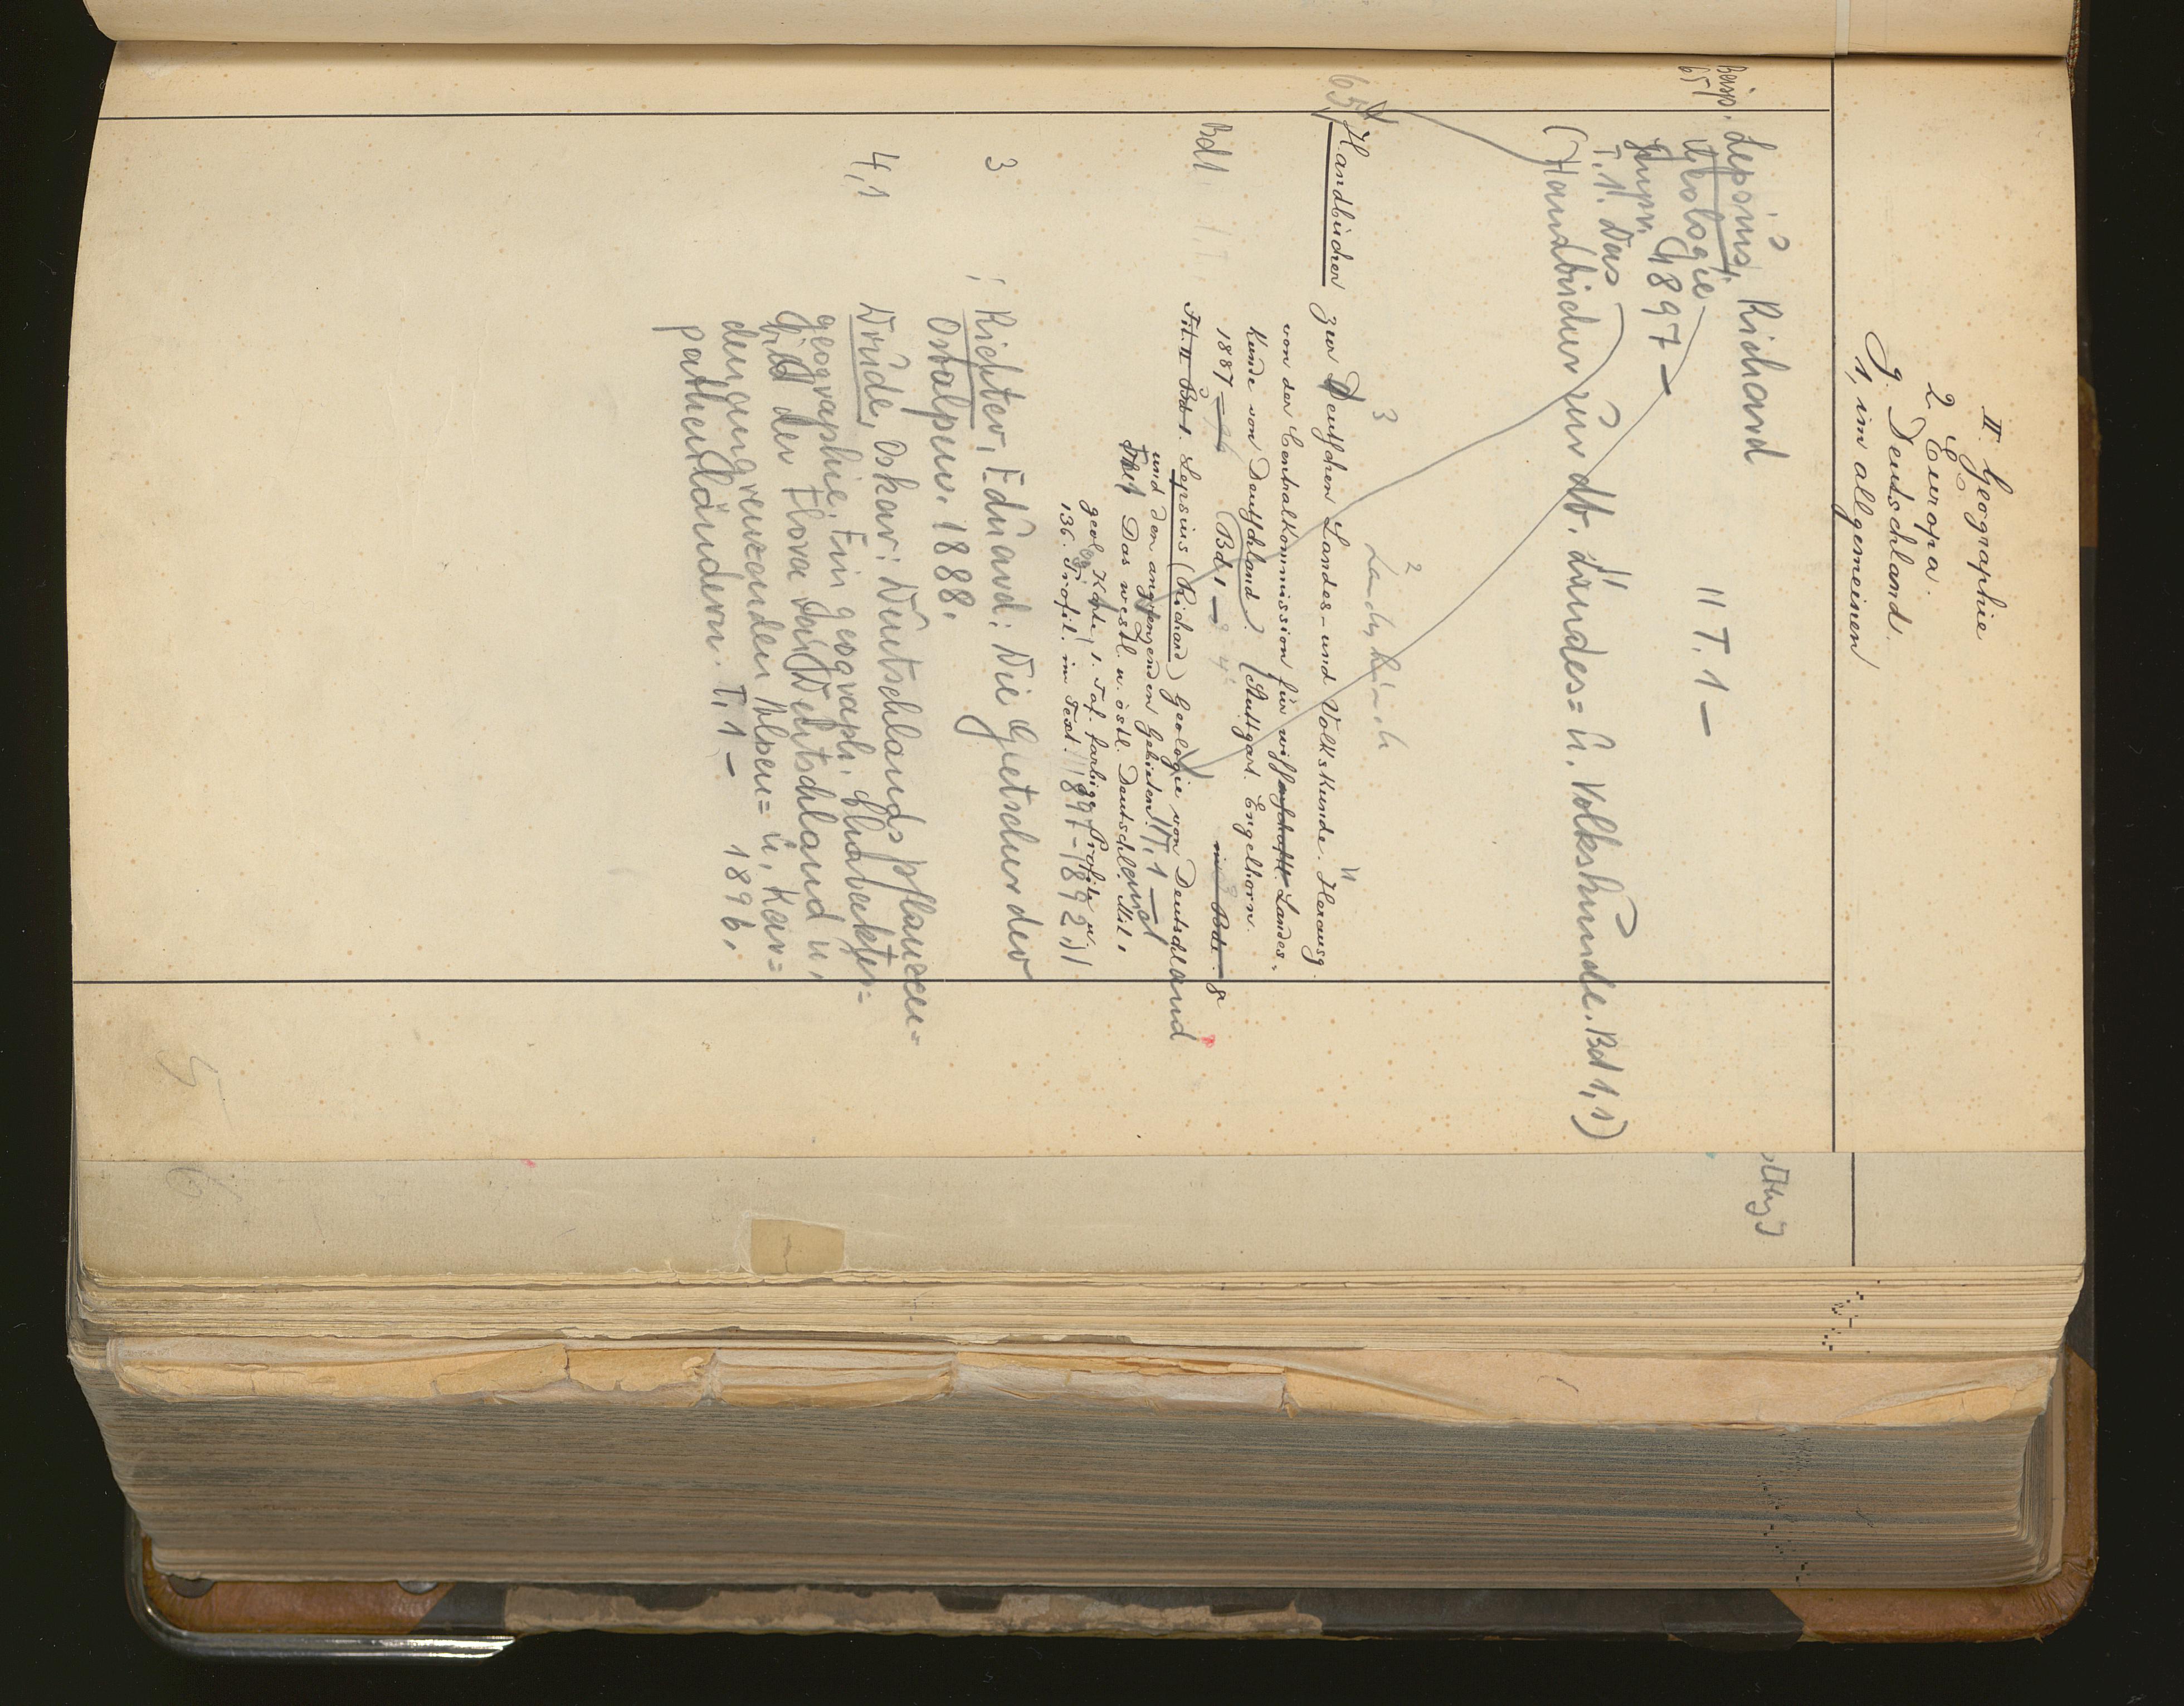 II. Geographie
2 Europa.
g. Deutschland.
1, im allgemeinen
Beisp.
65
Lepsius, Richard
Geologie " T. 1 —
1897 —
T. 1. Das
(Handbücher zur dt. Landes= u. Volkskunde. Bd 1,1)
3 2
65 Handbücher zur Deutschen Landes- und Volkskunde. Herausg.
von der Centralkommission für wissenschaftl. Landes-
Kunde von Deutschland. (Stuttgart. Engelhorn.
1887 — Bd. 1 — 8
Bd 1
Tit. II Bd 1. Lepsius (Richard) Geologie von Deutschland
und den angrenzenden Gebieten. T. 1 —
Das westl. u. östl. Deutschland. Mit 1
geol. Karte, 1. Taf. farbiger Profile u.
136. Profil. im Text. 1897-(1892.)
3 Richter, Eduard: Die Gletscher der
Ostalpen. 1888.
4,1 Drude, Oskar: Deutschlands Pflanzen=
geographie. Ein geograph. Charakter=
bild der Flora von Deutschland u.
den angrenzenden Alpen= u. Kar=
pathenländern. T. 1 — 1896.
5
6